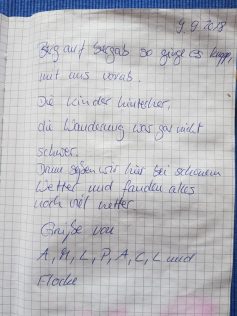 9.9.2018
Berg auf bergab so ging es knapp,
mit uns vorab.
Die Kinder hinterher,
die Wanderung war gar nicht
schwer.
Dann saßen wir hier bei schönem
Wetter und fanden alles
noch viel netter
Grüße von
A, M, L, P, A, C, L und
Flocke